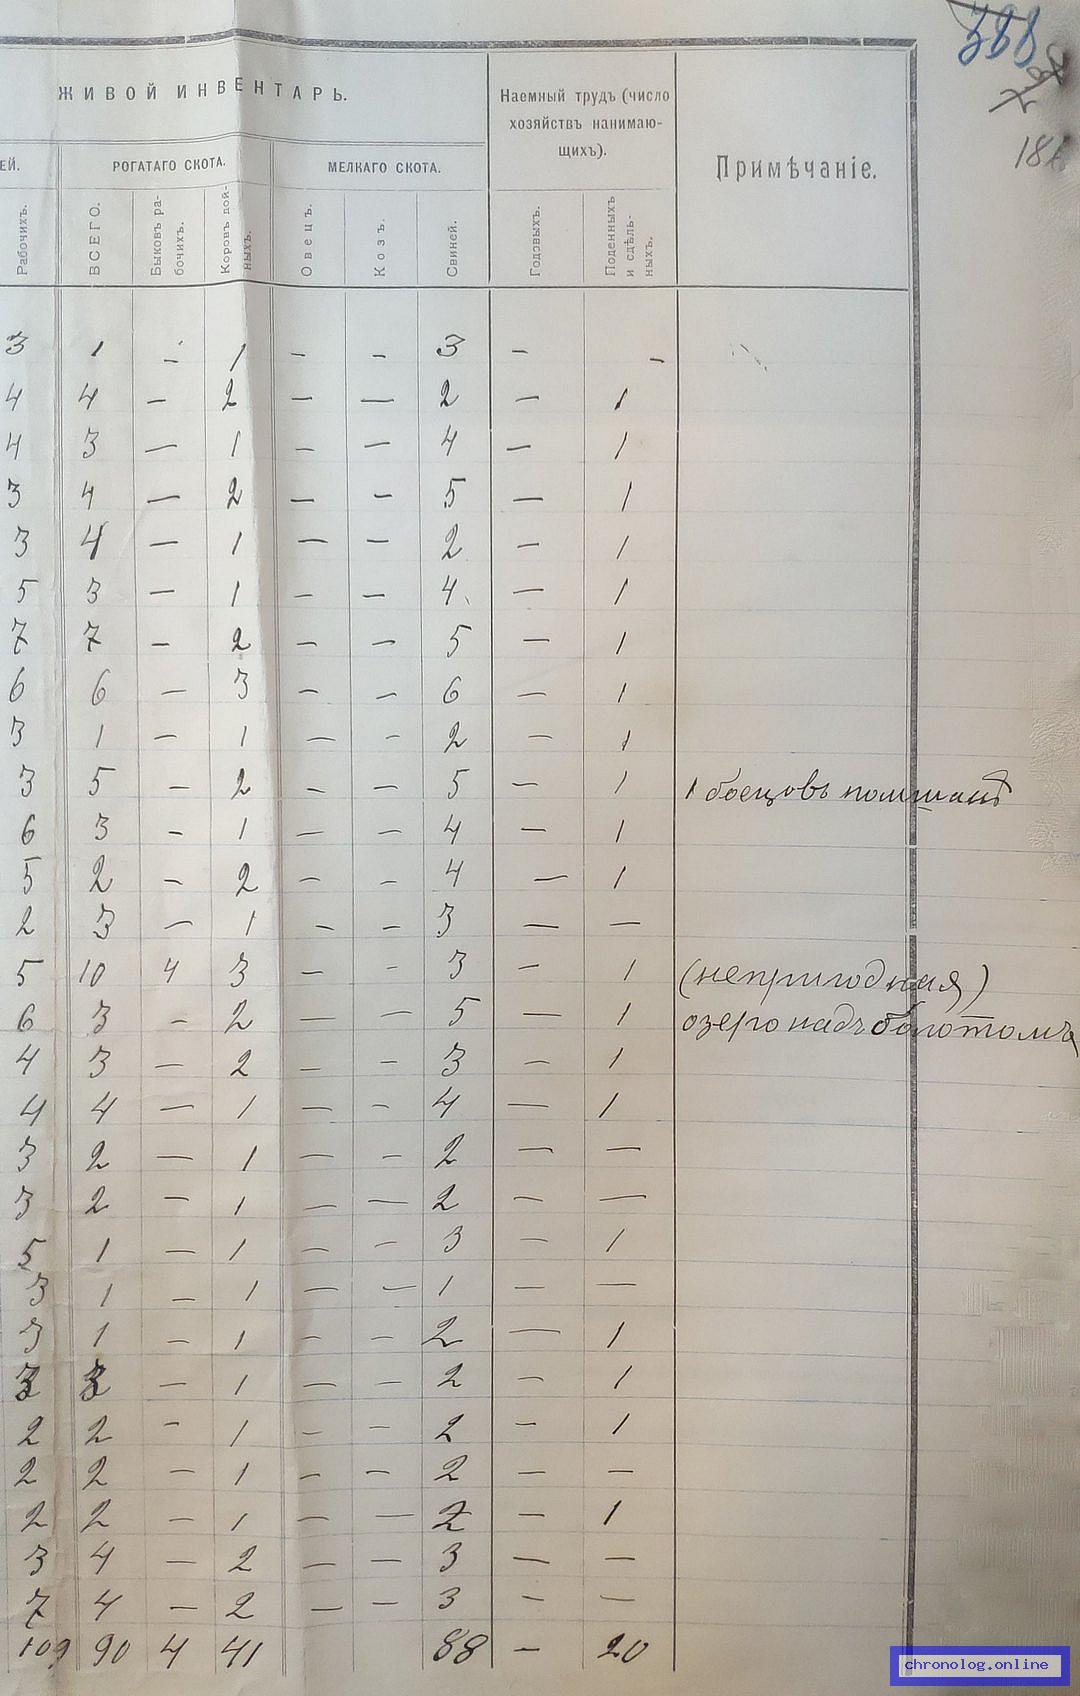 388
ЖИВОЙ ИНВЕНТАРЬ.
Наемный трудъ (число
хозяйствъ нанимаю-
щихъ).
Примѣчаніе.
ЕЙ.
РОГАТАГО СКОТА.
МЕЛКАГО СКОТА.
Рабочихъ.
ВСЕГО.
Быковъ ра-
бочихъ.
Коровъ дой-
ныхъ.
Овецъ.
Козъ.
Свиней.
Годовыхъ.
Поденныхъ
и сдѣль-
ныхъ.
3 1 – 1 – – 3 – –
4 4 – 2 – – 2 – 1
4 3 – 1 – – 4 – 1
3 4 – 2 – – 5 – 1
3 4 – 1 – – 2 – 1
5 3 – 1 – – 4 – 1
7 7 – 2 – – 5 – 1
6 6 – 3 – – 6 – 1
3 1 – 1 – – 2 – 1
3 5 – 2 – – 5 – 1 1
6 3 – 1 – – 4 – 1
5 2 – 2 – – 4 – 1
2 3 – 1 – – 3 – –
5 10 4 3 – – 3 – 1 (непригодная)
6 3 – 2 – – 5 – 1 озеро надъ болотомъ
4 3 – 2 – – 3 – 1
4 4 – 1 – – 4 – 1
3 2 – 1 – – 2 – –
3 2 – 1 – – 2 – –
5 1 – 1 – – 3 – 1
3 1 – 1 – – 1 – –
3 1 – 1 – – 2 – 1
3 3 – 1 – – 2 – 1
2 2 – 1 – – 2 – 1
2 2 – 1 – – 2 – –
2 2 – 1 – – 2 – 1
3 4 – 2 – – 3 – –
7 4 – 2 – – 3 – –
109 90 4 41 88 – 20
chronolog.online